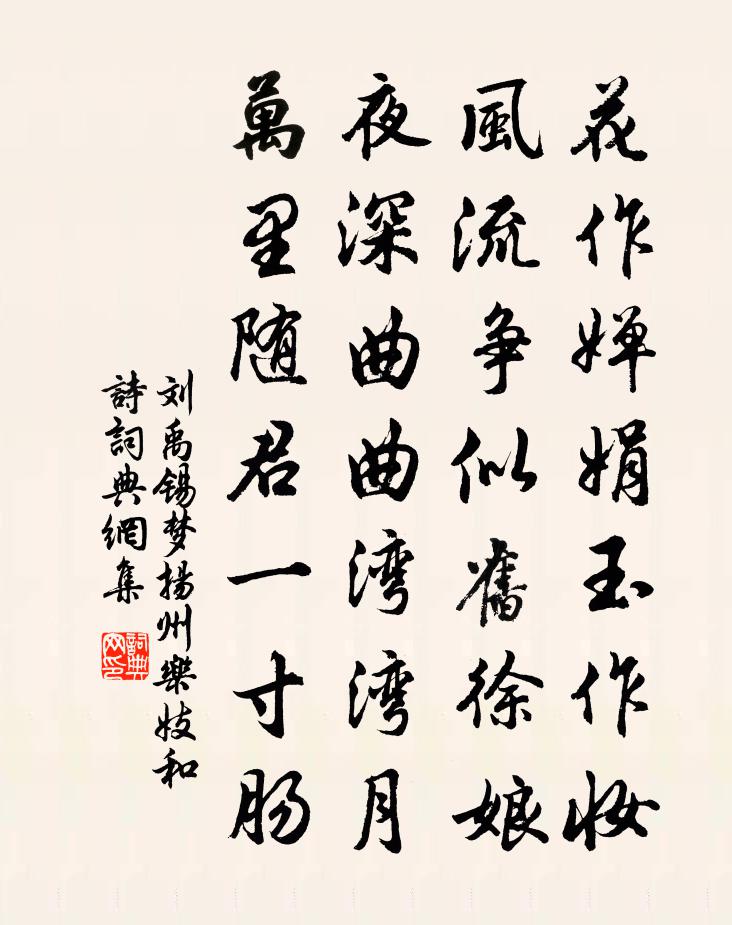 花作婵娟玉作妆
風流争似舊徐娘
夜深曲曲湾湾月
萬里随君一寸肠
刘禹锡梦揚州樂妓和
詩詞典網集
詞典网印